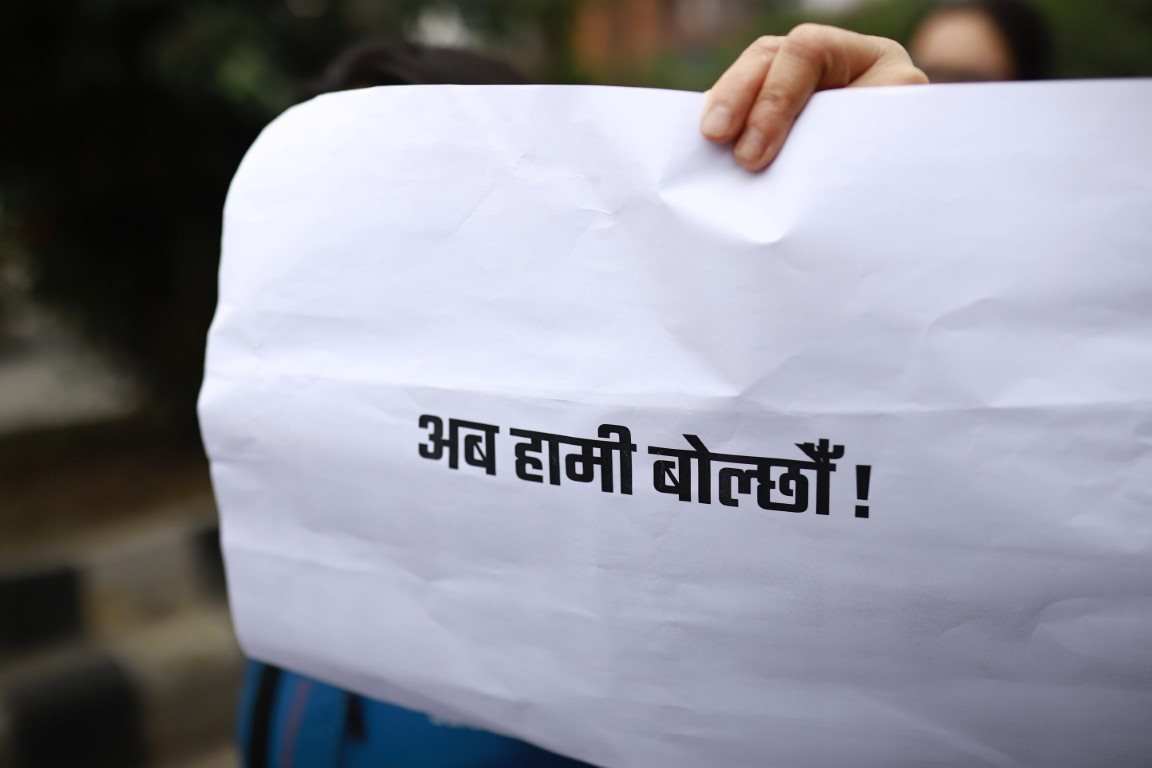 अब हामी बोल्छौँ !